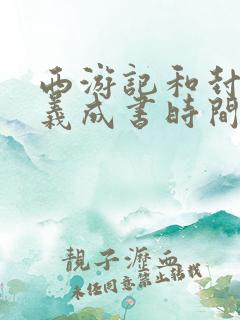 西游記和封
義成書時間
靚子瀝血
未经同意禁止转载